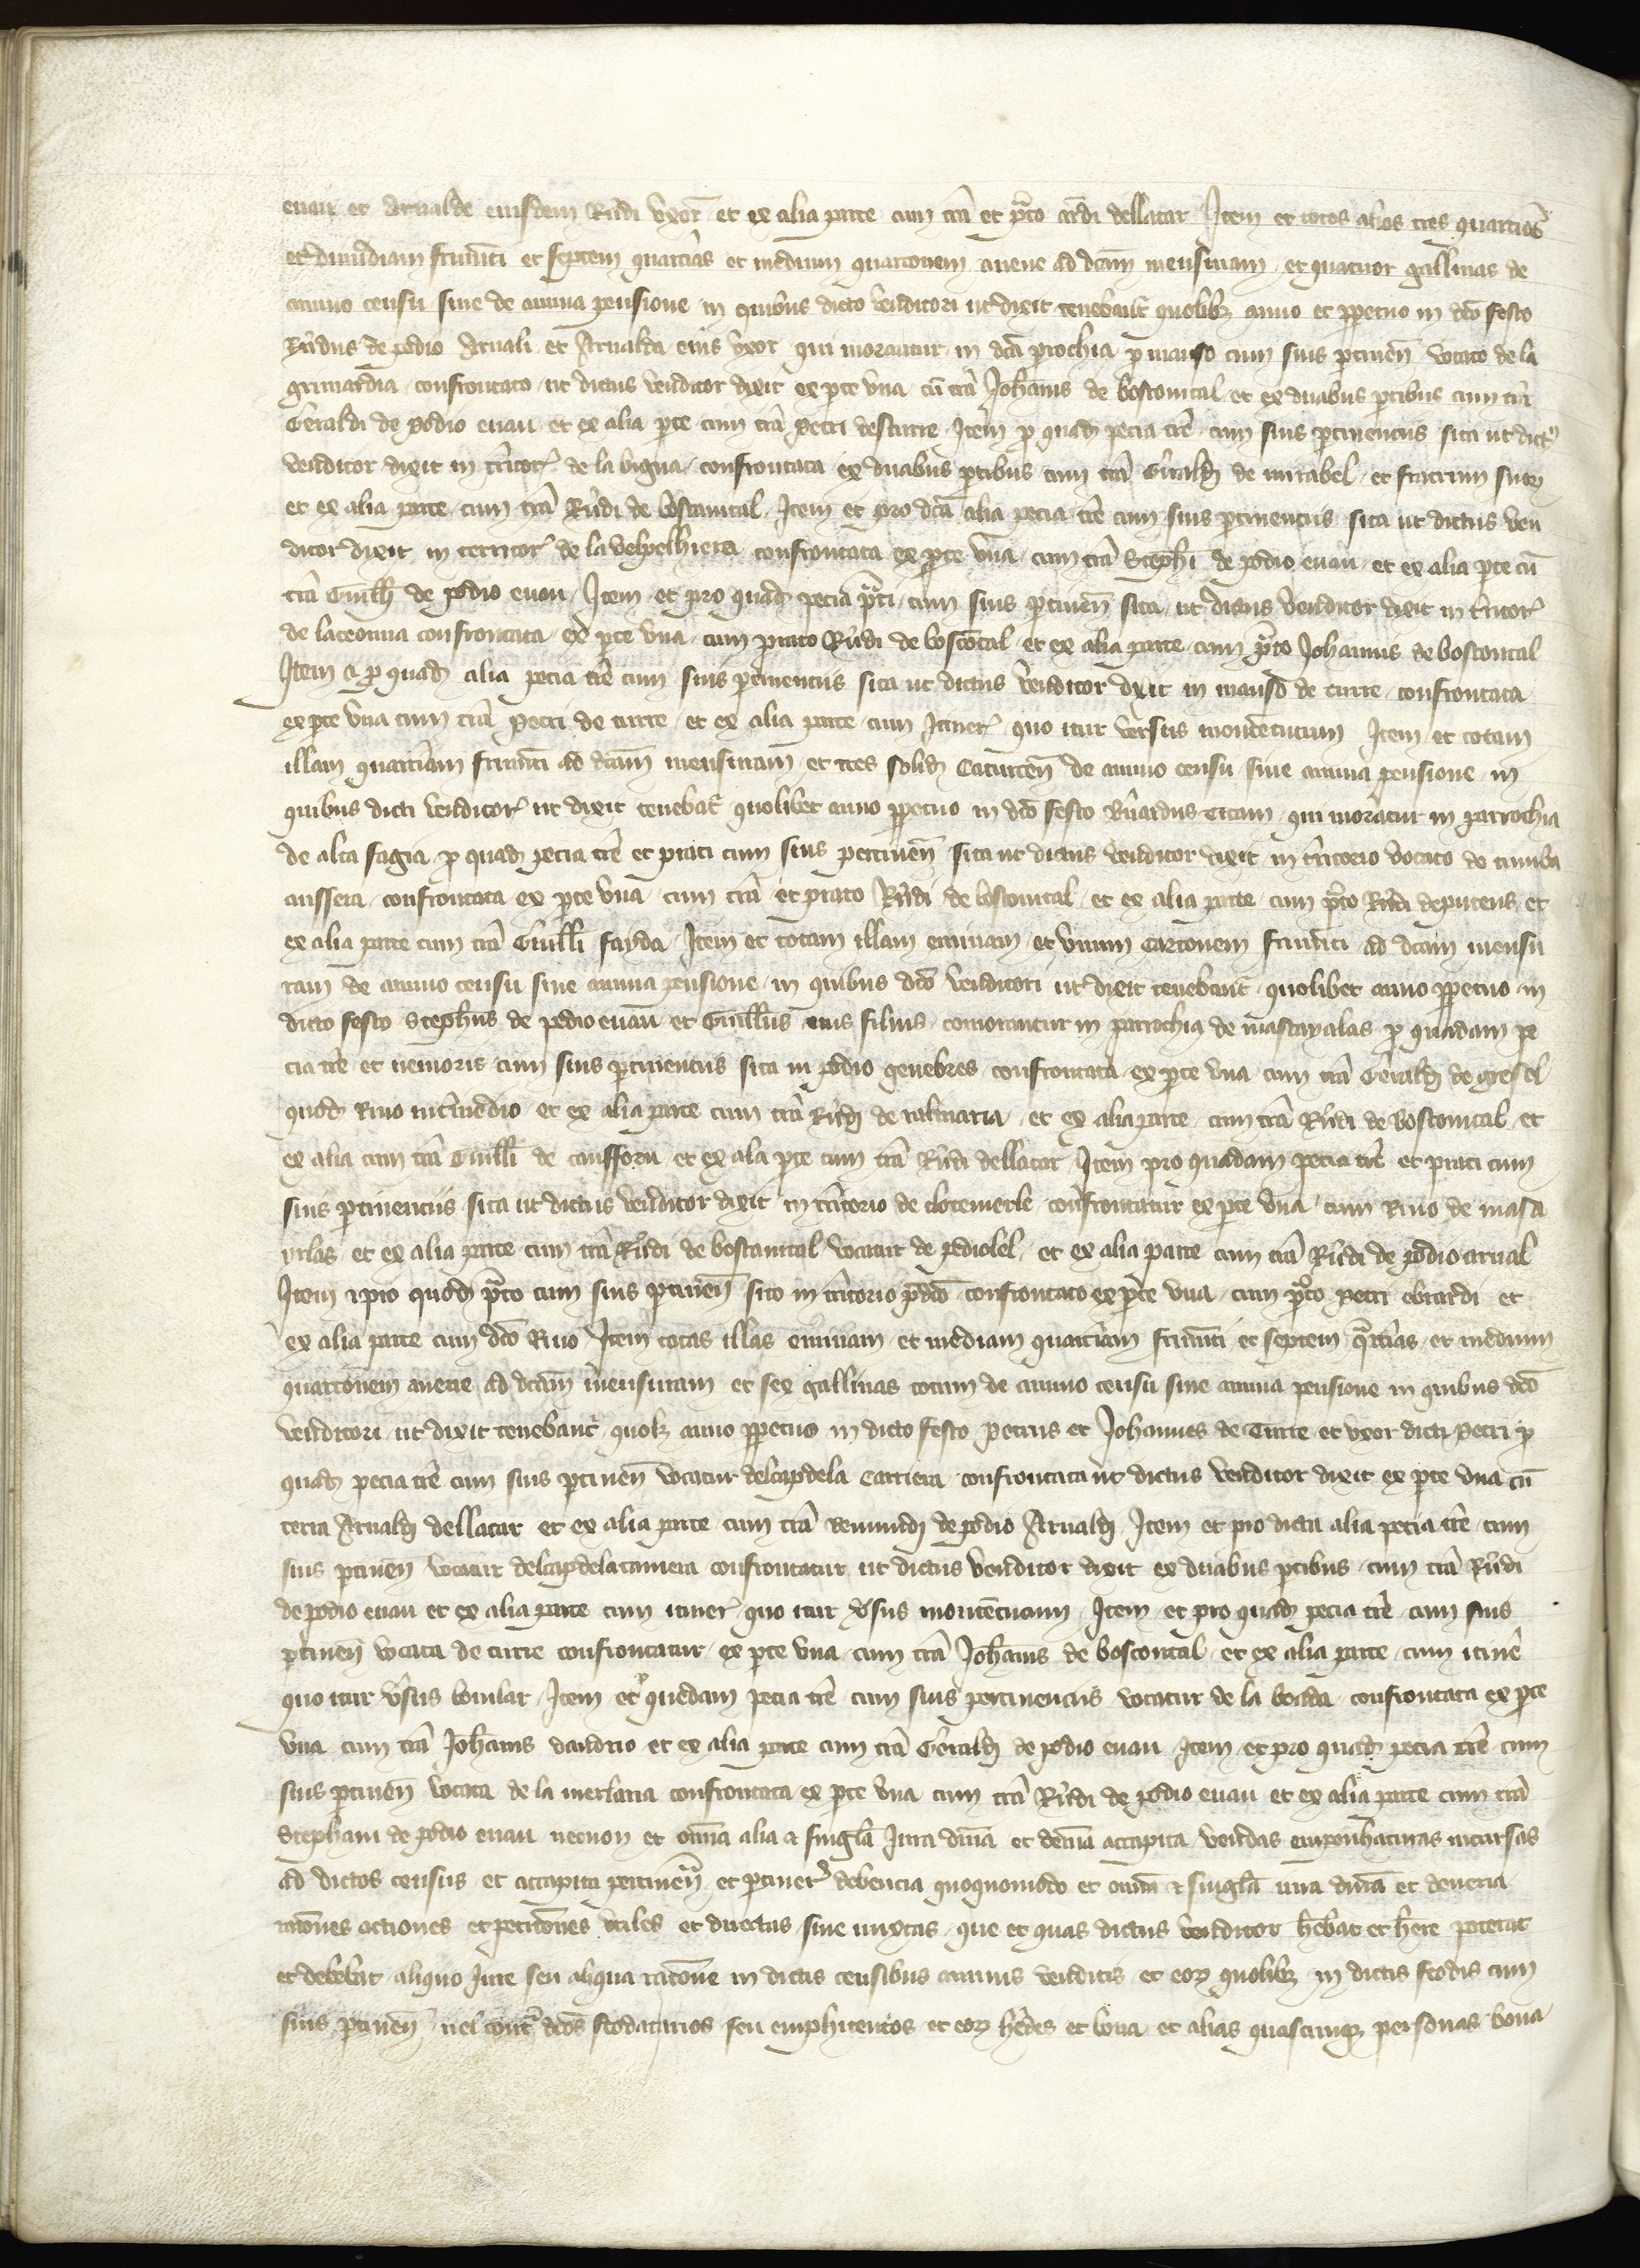 euan et Arnalde eiusdem Rn̄di vxor̄ et ex alia parte cum t̄ra et p̄to ar̄di dellatar Item et totos alios tres quartios
et dimidiam frum̄ti et septem quart̄ias et medium quartonem auene ad dc̄am mensuram et quatuor gallinas de
annuo censu siue de annua pensione in quibus dicto venditori ut dixit tenebant̄ quolibꝫ anno et ꝑpetuo in dc̄o festo
Rn̄dus de podio Arnali et Arnalda eius vxor qui morantur in dc̄a ꝑrochia ꝑ manso cum suis ꝑtinen̄ vocato de la
grimardia confrontato ut dictus venditor dixit ex ꝑte vna cū t̄ra Joh̄anis de boscomtal et ex duabus ꝑtibus cum t̄ra
Geraldi de podio euau et ex alia ꝑte cum t̄ra petri desturre Item ꝑ quad̄ pecia t̄re cum suis ꝑtinenciis sita ut dict9
venditor dixit in t̄ritor̄ de la bigua confrontata ex duabus ꝑtibus cum t̄ra Gerald̄ de mirabel et fratrum suoꝝ
et ex alia parte cum t̄ra Rn̄di de bostamtal Item et pro dc̄a alia pecia t̄re cum suis ꝑtinenciis sita ut dictus ven
ditor dixit in territor̄ de la volpelhiera confrontata ex ꝑte vna cum t̄ra Steph̄i de podio euau et ex alia ꝑte cū
t̄ra Guill̄i de podio euau Item et pro quad̄ pecia p̄ti cum suis ꝑtinen̄ sita ut dictus venditor dixit in t̄ritor̄
de lacomna confrontata ex ꝑte vna cum prato Rn̄di de boscōtal et ex alia parte cum p̄to Johannis de boscontal
Item & ꝑ quad̄ alia pecia t̄re cum suis ꝑtinenciis sita ut dictus venditor dixit in manso de turre confrontata
ex ꝑte vna cum t̄ra petri de turre et ex alia parte cum Itiner̄ quo itur versus montētutum Item et totam
illam quart̄iam frum̄ti ad dc̄am mensuram et tres solid̄ Caturcen̄ de annuo censu siue annua pensione in
quibus dicti venditor̄ ut dixit tenebat̄ quolibet anno ꝑpetuo in dc̄o festo Rn̄ardus Titam qui moratur in parrochia
de alta fagia ꝑ quad̄ pecia t̄re et prati cum suis pertinen̄ sita ut dictus venditor dixit in t̄ritorio vocato de cumba
aussera confrontata ex ꝑte vna cum t̄ra et prato Rn̄di de boscomtal et ex alia parte cum p̄to Rn̄di deputeus et
ex alia parte cum t̄ra Guill̄i fayda Item et totam illam eminam et vnum cartonem frum̄ti ad dc̄am mensu
ram de annuo censu siue annua pensione in quibus dc̄o venditori ut dixit tenebant̄ quolibet anno ꝑpetuo in
dicto festo Steph̄us de podio euau et Guill̄us eius filius comorantur in parrochia de mascayalas ꝑ quadam pe
cia t̄re et nemoris cum suis ꝑtinenciis sita in podio genebres confrontata ex ꝑte vna cum t̄ra Gerald̄ de gresel
quod̄ Riuo int̄medio et ex alia parte cum t̄ra Rn̄d̄ de ralmaria et ex alia parte cum t̄ra Rn̄di de boscomtal et
ex alia cum t̄ra Guill̄i de caussoru et ex ala ꝑte cum t̄ra Rn̄di dellatar Item pro quadam pecia t̄re et prati cum
suis ꝑtinenciis sita ut dictus venditor dixit in t̄ritorio de clotemerle confrontatur ex ꝑte vna cum Riuo de masca
yrlas et ex alia parte cum t̄ra Rn̄di de bostamtal vocatur de pediolel et ex alia parte cum t̄ra Rn̄di de podio arnal
Item & pro quod̄ p̄to cum suis ꝑtinen̄ sito in t̄ritorio p̄dc̄o confrontato ex ꝑte vna cum p̄to petri ebrardi et
ex alia parte cum dc̄o Riuo Item totas illas eminam et mediam quart̄iam frum̄ti et septem q̄rtias et medium
quartonem auene ad dc̄am mensuram et sex gallinas totum de annuo censu siue annua pensione in quibus dc̄o
venditori ut dixit tenebant̄ quolꝫ anno ꝑpetuo in dicto festo petrus et Johannes de Turre et vxor dicti petri ꝑ
quad̄ pecia t̄re cum suis ꝑtinen̄ vocatur delcapdela Carriera confrontata ut dictus venditor dixit ex ꝑte vna cū
terra Arnald̄ dellatar et ex alia parte cum t̄ra Remund̄ de podio Arnald̄ Item et pro dicta alia pecia t̄re cum
suis ꝑtinen̄ vocatur delcapdelacamiera confrontatur ut dictus venditor dixit ex duabus ꝑtibus cum t̄ra Rn̄di
de podio euau et ex alia parte cum itiner̄ quo itur v̄sus montētutum Item et pro quad̄ pecia t̄re cum suis
ꝑtinen̄ vocata de turre confrontatur ex ꝑte vna cum t̄ra Joh̄anis de boscontal et ex alia parte cum itin̄e
quo itur v̄sus bouilar Item et ꝑ quedam pecia t̄re cum suis pertinenciis vocatur de la boada confrontata ex ꝑte
vna cum t̄ra Joh̄anis dandrio et ex alia parte cum t̄ra Gerald̄ de podio euau Item et pro quad̄ pecia t̄re cum
suis ꝑtinen̄ vocata de la merlaria confrontata ex ꝑte vna cum t̄ra Rn̄di de podio euau et ex alia parte cum t̄ra
Stephani de podio euau necnon et om̄ia alia & singl̄a Iura dn̄ia et deu̅ia accapita vendas empenhaturas incursas
ad dictos census et accapita pertinen̄ et ꝑtiner̄ debencia quoquomodo et om̄ia & singl̄a iura dn̄ia et deueria
rac̄ones actiones et petic̄ones vtiles et directas siue mixtas que et quas dictus venditor h̄ebat et h̄ere poterat
et debebat aliquo Iure seu aliqua rac̄one in dictis censibus annuis venditis et eoꝝ quolibꝫ in dictis feodis cum
suis ꝑtinen̄ uel cont̄ dc̄os feodatarios seu emphiteotos et eoꝝ h̄edes et bona et alias quascumqꝫ personas bona